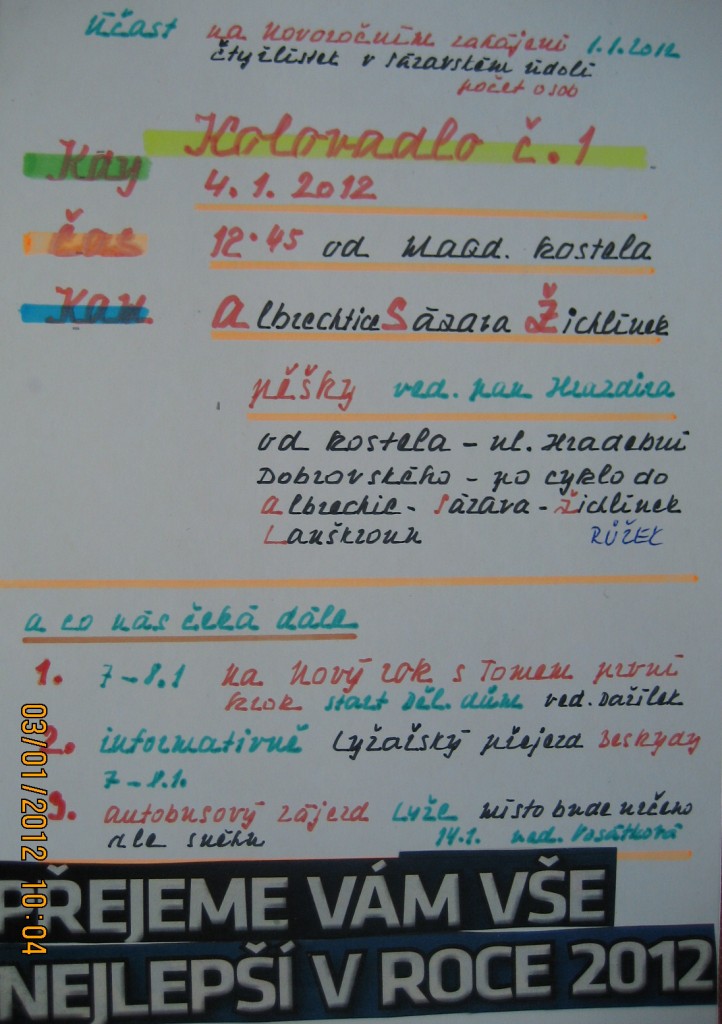 účast na novoročním zahájení 1.1.2012
čtyřlístek v Sázavském údolí
počet osob
Kolovadlo č.1
Kdy 4.1.2012
čas 12.45 od Magd. kostela
Kam Albrechtice Sázava Žichlínek
pěšky ved. pan Hrazdira
od kostela - ul. Hradební
Dobrovského - po cyklo do
Albrechic - Sázava - Žichlínek
Lanškroun RŮŽEK
a co nás čeká dále
1. 7-8.1 na Nový rok s Tomem první
krok start Děl. dům ved. Dařílek
2. informativně Lyžařský přejezd Beskydy
7-8.1.
3. autobusový zájezd Lyže místo bude určeno
dle sněhu 14.1. ved. Vosátková
PŘEJEME VÁM VŠE
NEJLEPŠÍ V ROCE 2012
03/01/2012 10:04